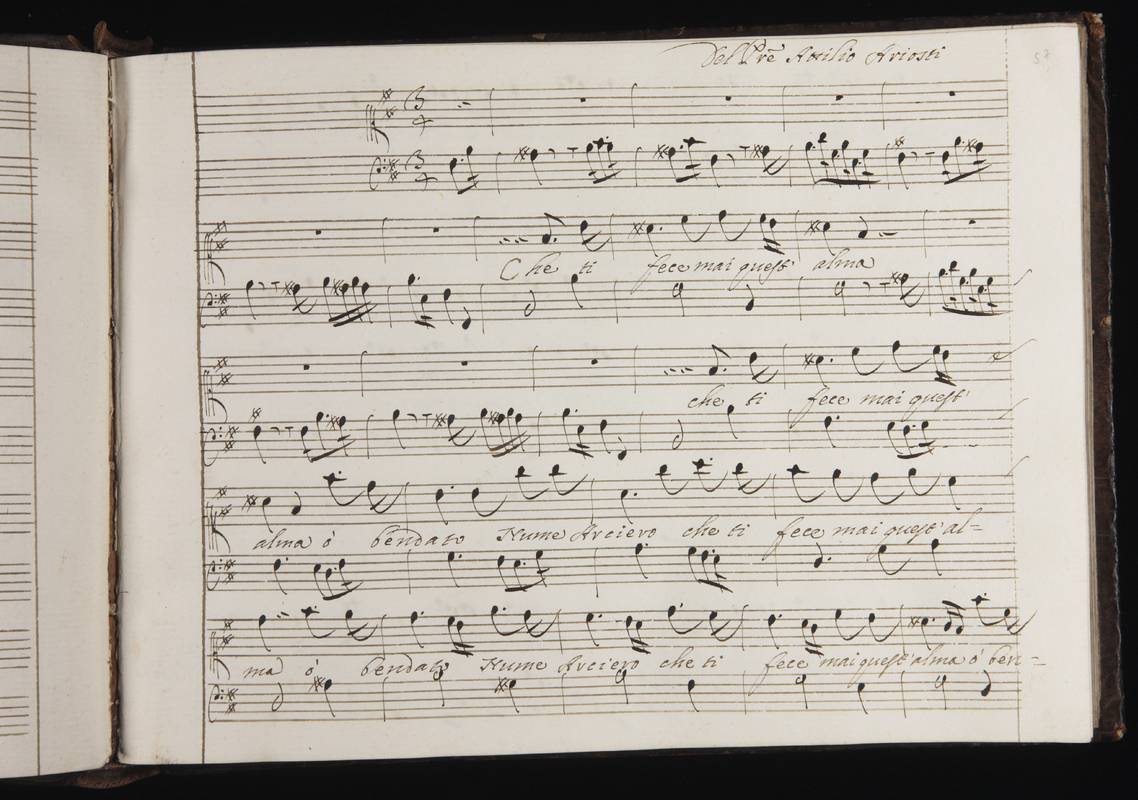 57
Del Prè Attilio Ariosti
3
4
3
4
Che ti fece mai quest' alma
che ti fece mai quest'
alma ò bendato Nume Arciero che ti fece mai quest' al=
ma ò bendato Nume Arciero che ti fece mai quest' alma ò ben=